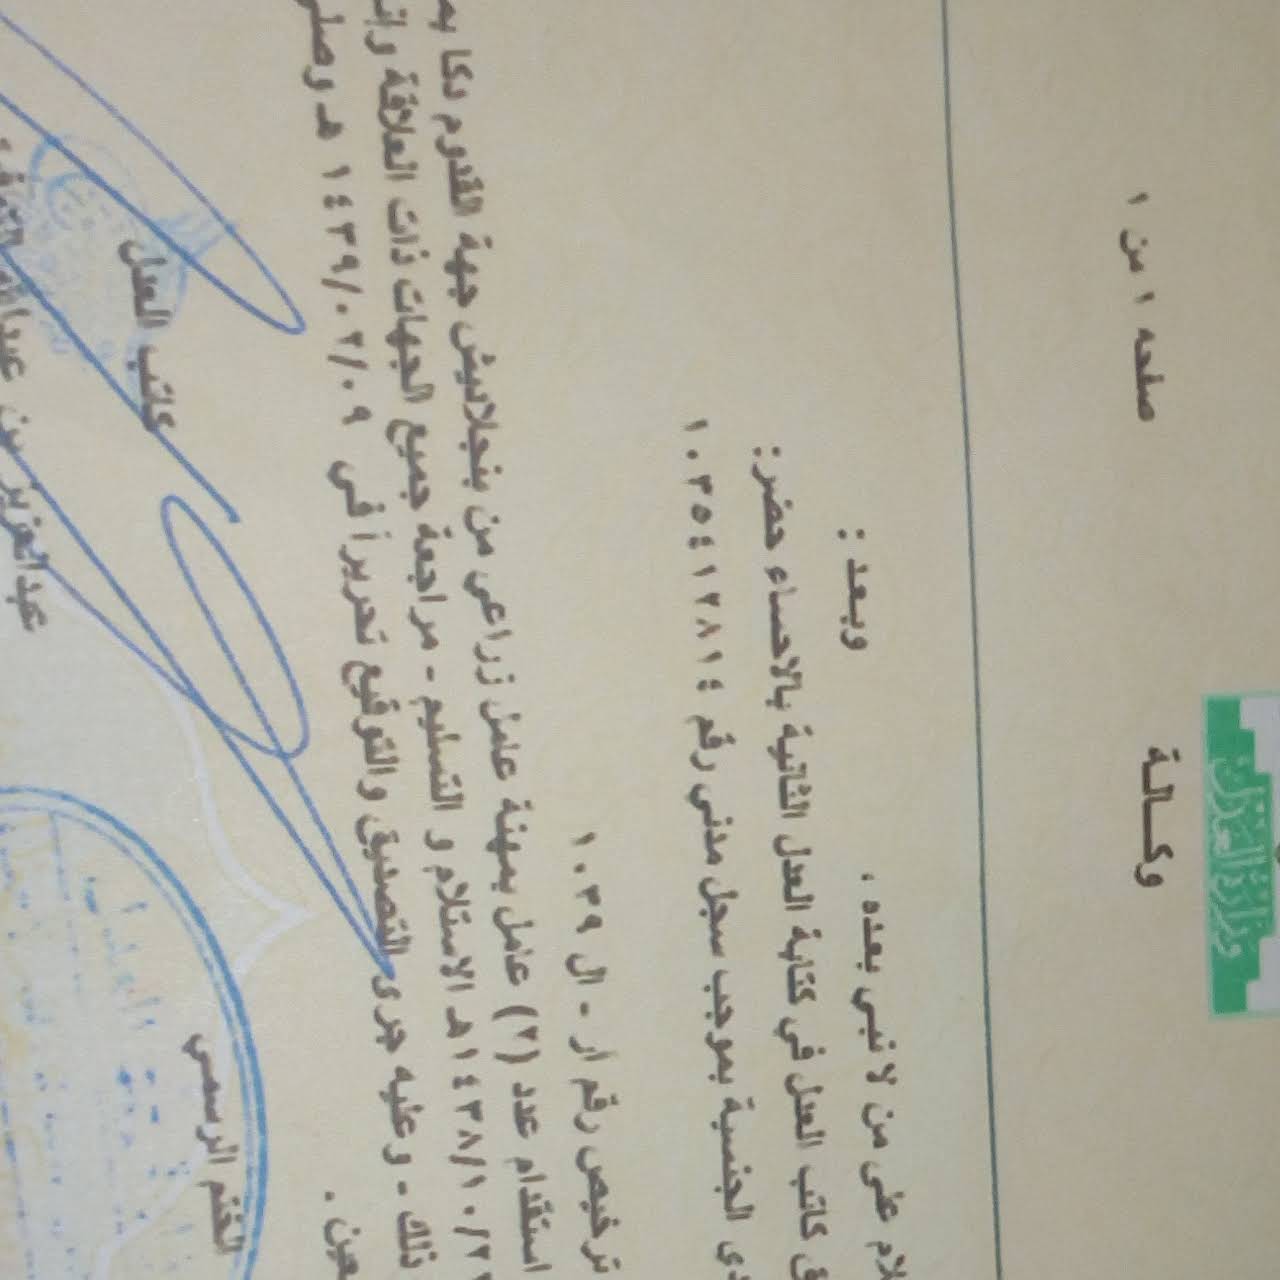 وزارة العدل
وكـــالـة
صفحه ١ من ١
لام على من لا نبي بعده ، وبعد :
كاتب العدل في كتابة العدل الثانية بالاحساء حضر:
الجنسية بموجب سجل مدني رقم ١٠٣٥٤١٢٨١٤
ترخيص رقم أر - ال ١٠٣٩
استقدام عدد (٢) عامل بمهنة عامل زراعي من بنجلاديش جهة القدوم دكا
١٤٣٨/١٠/٢ هـ الاستلام و التسليم - مراجعة جميع الجهات ذات العلاقة
ذلك - وعليه جرى التصديق والتوقيع تحريراً في ١٤٣٩/٠٢/٠٩ هـ وصلى
الختم الرسمي
كاتب العدل
عبدالعزيز بن عبدالله